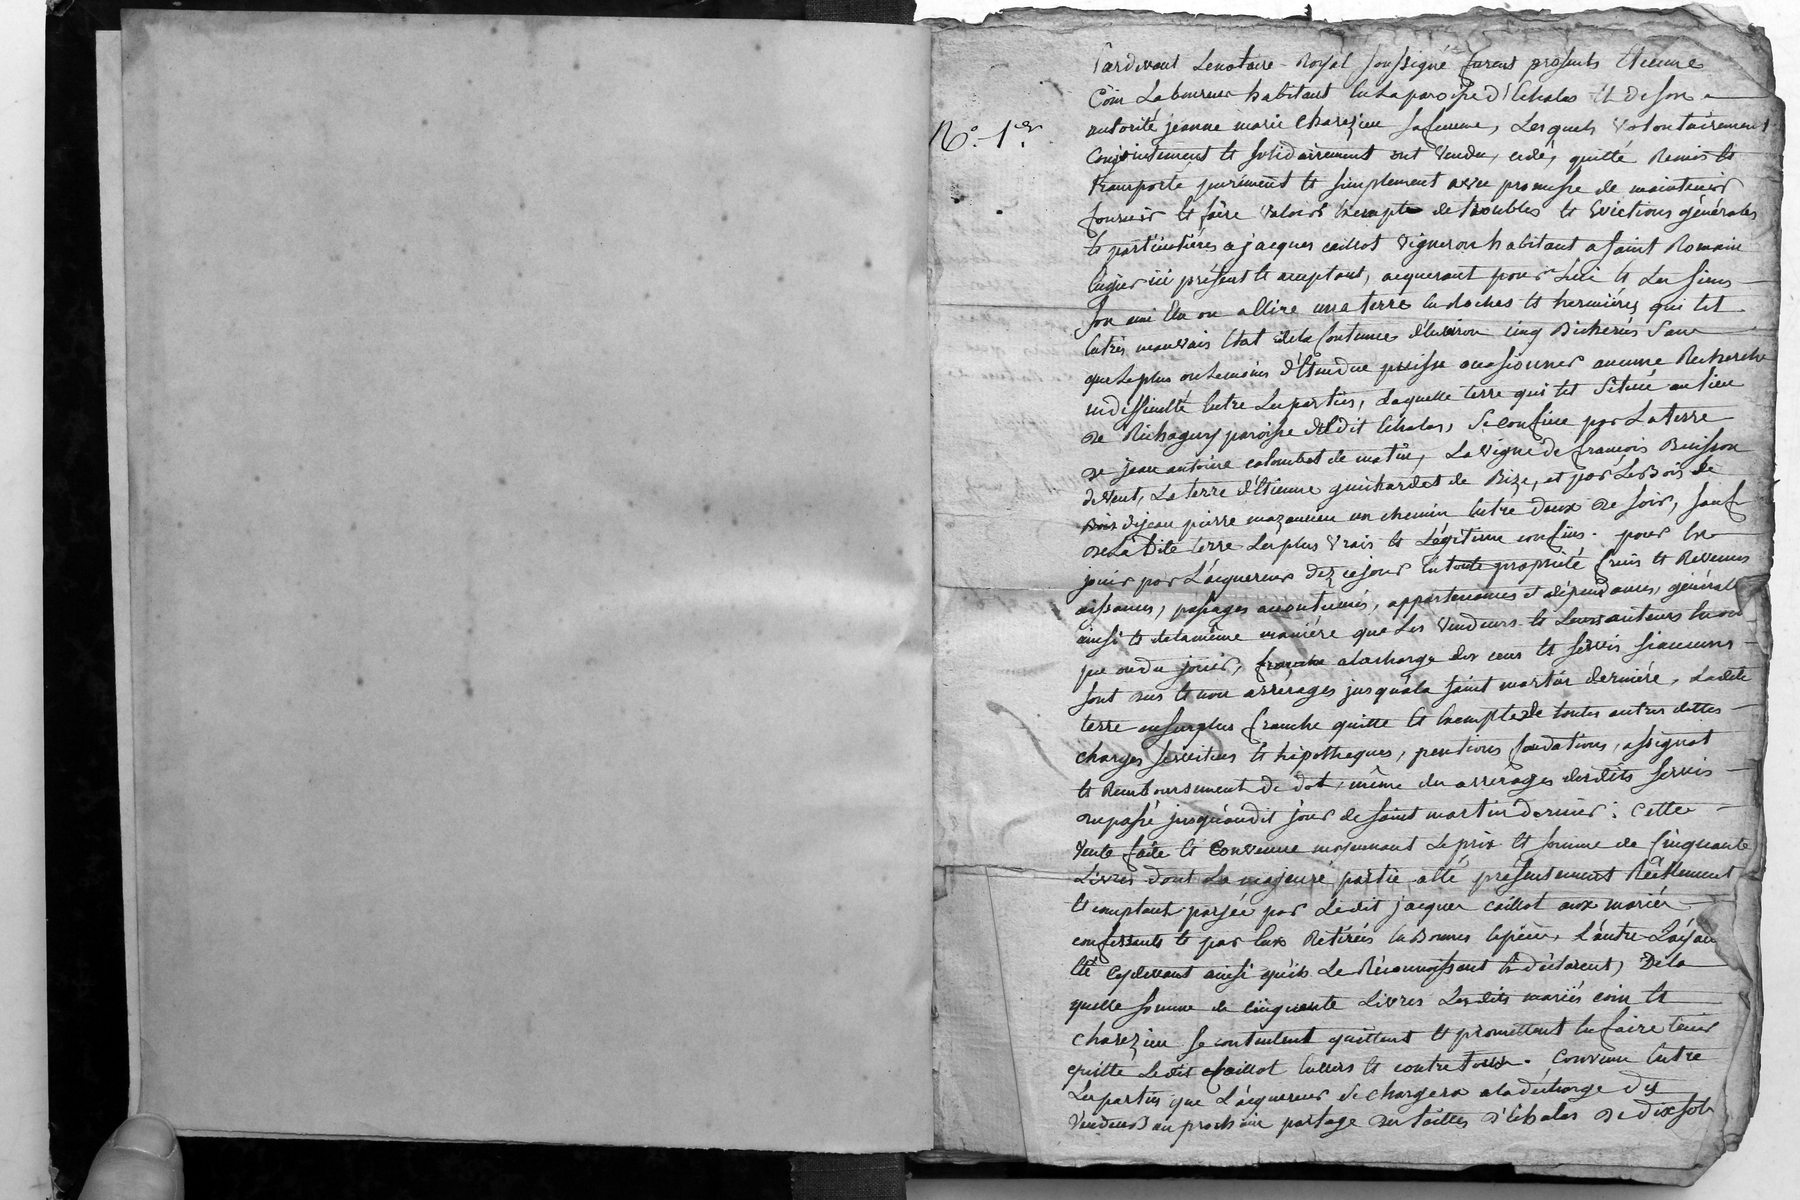 N.º 1.er
Pardevant Lenotaire Royal soussigné furent présents Etienne
Coin Laboureur habitant en La paroisse d'Echalas et de son
autorité jeanne marie Charezieu sa femme, Lesquels volontairement
conjointement et solidairement ont vendu, cedé, quitté Remis et
transporté purement et simplement avec promesse de maintenir
fournir et faire valoir exempte de troubles et Evictions générales
et particulières a jacques caillot vigneron habitant a saint Romain
engier ici présent et acceptant, acquerant pour Lui et Les siens
son ami Elu ou a Elire une terre en Roches et hermières qui est
entrès mauvais Etat de la Contenue d'Environ cinq Bicherées sans
que Le plus ou Le moins d'Etendue puisse occasionner aucune Recherche
ni difficulté Entre Les parties, Laquelle terre qui est Située au lieu
de paroisse dudit Echalas, Se confine par La terre
de jean antoine colombet de matin, La vigne de francois Buisson
de vent, La terre d'Etienne guichardet de Bize, et par Le Bois de
Bois dejean pierre un chemin Entre deux de soir, sauf
de La Dite terre Les plus vrais et Légitime confins. pour En
jouir par L'acquereur Dez ce jour En toute propriété fruis et Revenus
aisances, passages accoutumés, appartenances et dépendances, générale
ainsi et de la même manière que Les vendeurs et Leurs auteurs En ont
pu ou du jouir, franche a la charge des cens et servis si aucuns
sont dus et non arrérages jusqu'a la saint martin dernière, Ladite
terre au surplus franche quitte et Exempte de toutes autres dettes
charges servitues et hipotheques, pentions fondations, assignat
et Remboursement de dot, même des arrérages desdits servis
du passé jusqu'audit jour de saint martin dernier: Cette
Vente faite et Convenue moyennant Le prix et somme de Cinquante
Livres dont La majeure partie a Eté présentement Réellement
et comptant payée par Ledit jacques caillot aux mariés
confessants et par Eux Retirée En Bonnes Espèces, L'autre Layant
Eté cydevant ainsi qu'ils Le Réconnoissent Et déclarent, De la
quelle somme de cinquante Livres Lesdits mariés coin et
Charezieu se contentent quittent et promettent En faire tenir
quitte Ledit Caillot Envers et contre tous. Convenu Entre
Les parties que L'acquereur se chargera a la décharge des
Vendeurs au prochain partage des tailles d'Echalas de dix sols